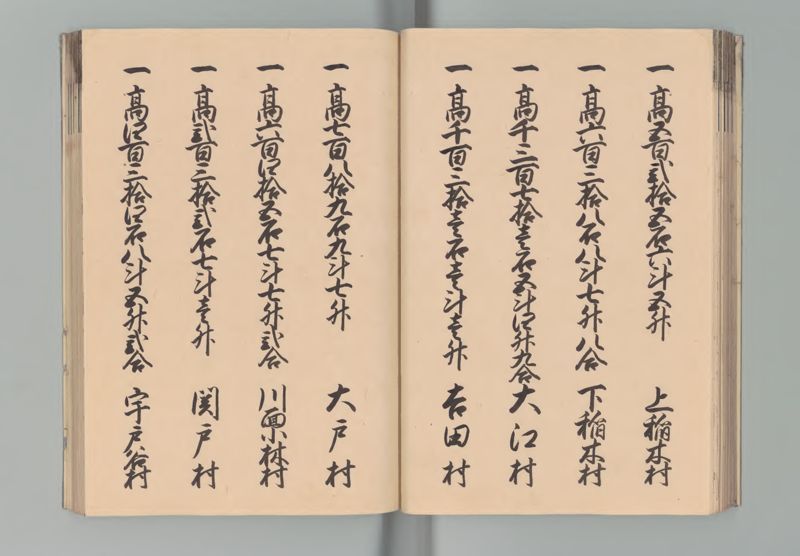 一 高五百弐拾五石六斗五升 上稲木村
一 高六百三拾八石八斗七升八合 下稲木村
一 高千三百七拾壱石五斗四升九合 大江村
一 高千百三拾壱石壱斗壱升 吉田村
一 高七百八拾九石九斗七升 大戸村
一 高六百四拾五石七斗七升弐合 川面小林村
一 高弐百三拾弐石七斗壱升 関戸村
一 高四百三拾四石八斗五升弐合 宇戸谷村